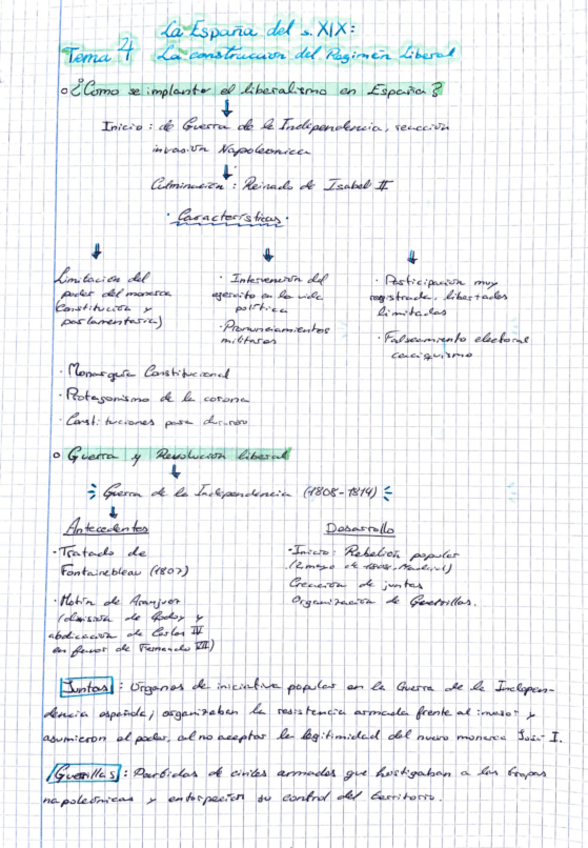 La España del s. XIX:
Tema 4 La construcción del Regimén Liberal
¿Como se implanta el liberalismo en España?
Inicio: de Guerra de la Independencia, reacción
invasión Napoleonica
Culminación: Reinado de Isabel II
· Características ·
Limitación del
poder del monarca
(Constitución y
parlamentaria)
· Intervención del
ejercito en la vida
política
· Pronunciamientos
militares
· Participación muy
registrada, libertades
limitadas
· Falseamiento electoral
caciquismo
· Monarquía Constitucional
· Protagonismo de la corona
· Constituciones para
Guerra y Revolución liberal
Guerra de la Independencia (1808-1814)
Antecedentes
· Tratado de
Fontainebleau (1807)
· Motín de Aranjuez
(dimisión de Godoy y
abdicación de Carlos IV
en favor de Fernando VII)
Desarrollo
· Inicio: Rebelión popular
(2 mayo de 1808, Madrid)
Creación de juntas
Organización de Guerrillas.
Juntas: Órganos de iniciativa popular en la Guerra de la Indepen-
dencia española; organizaban la resistencia armada frente al invasor y
asumieron el poder, al no aceptar la legitimidad del nuevo monarca José I.
Guerillas: Partidas de civiles armados que hostigaban a las tropas
napoleónicas y entorpecían su control del territorio.